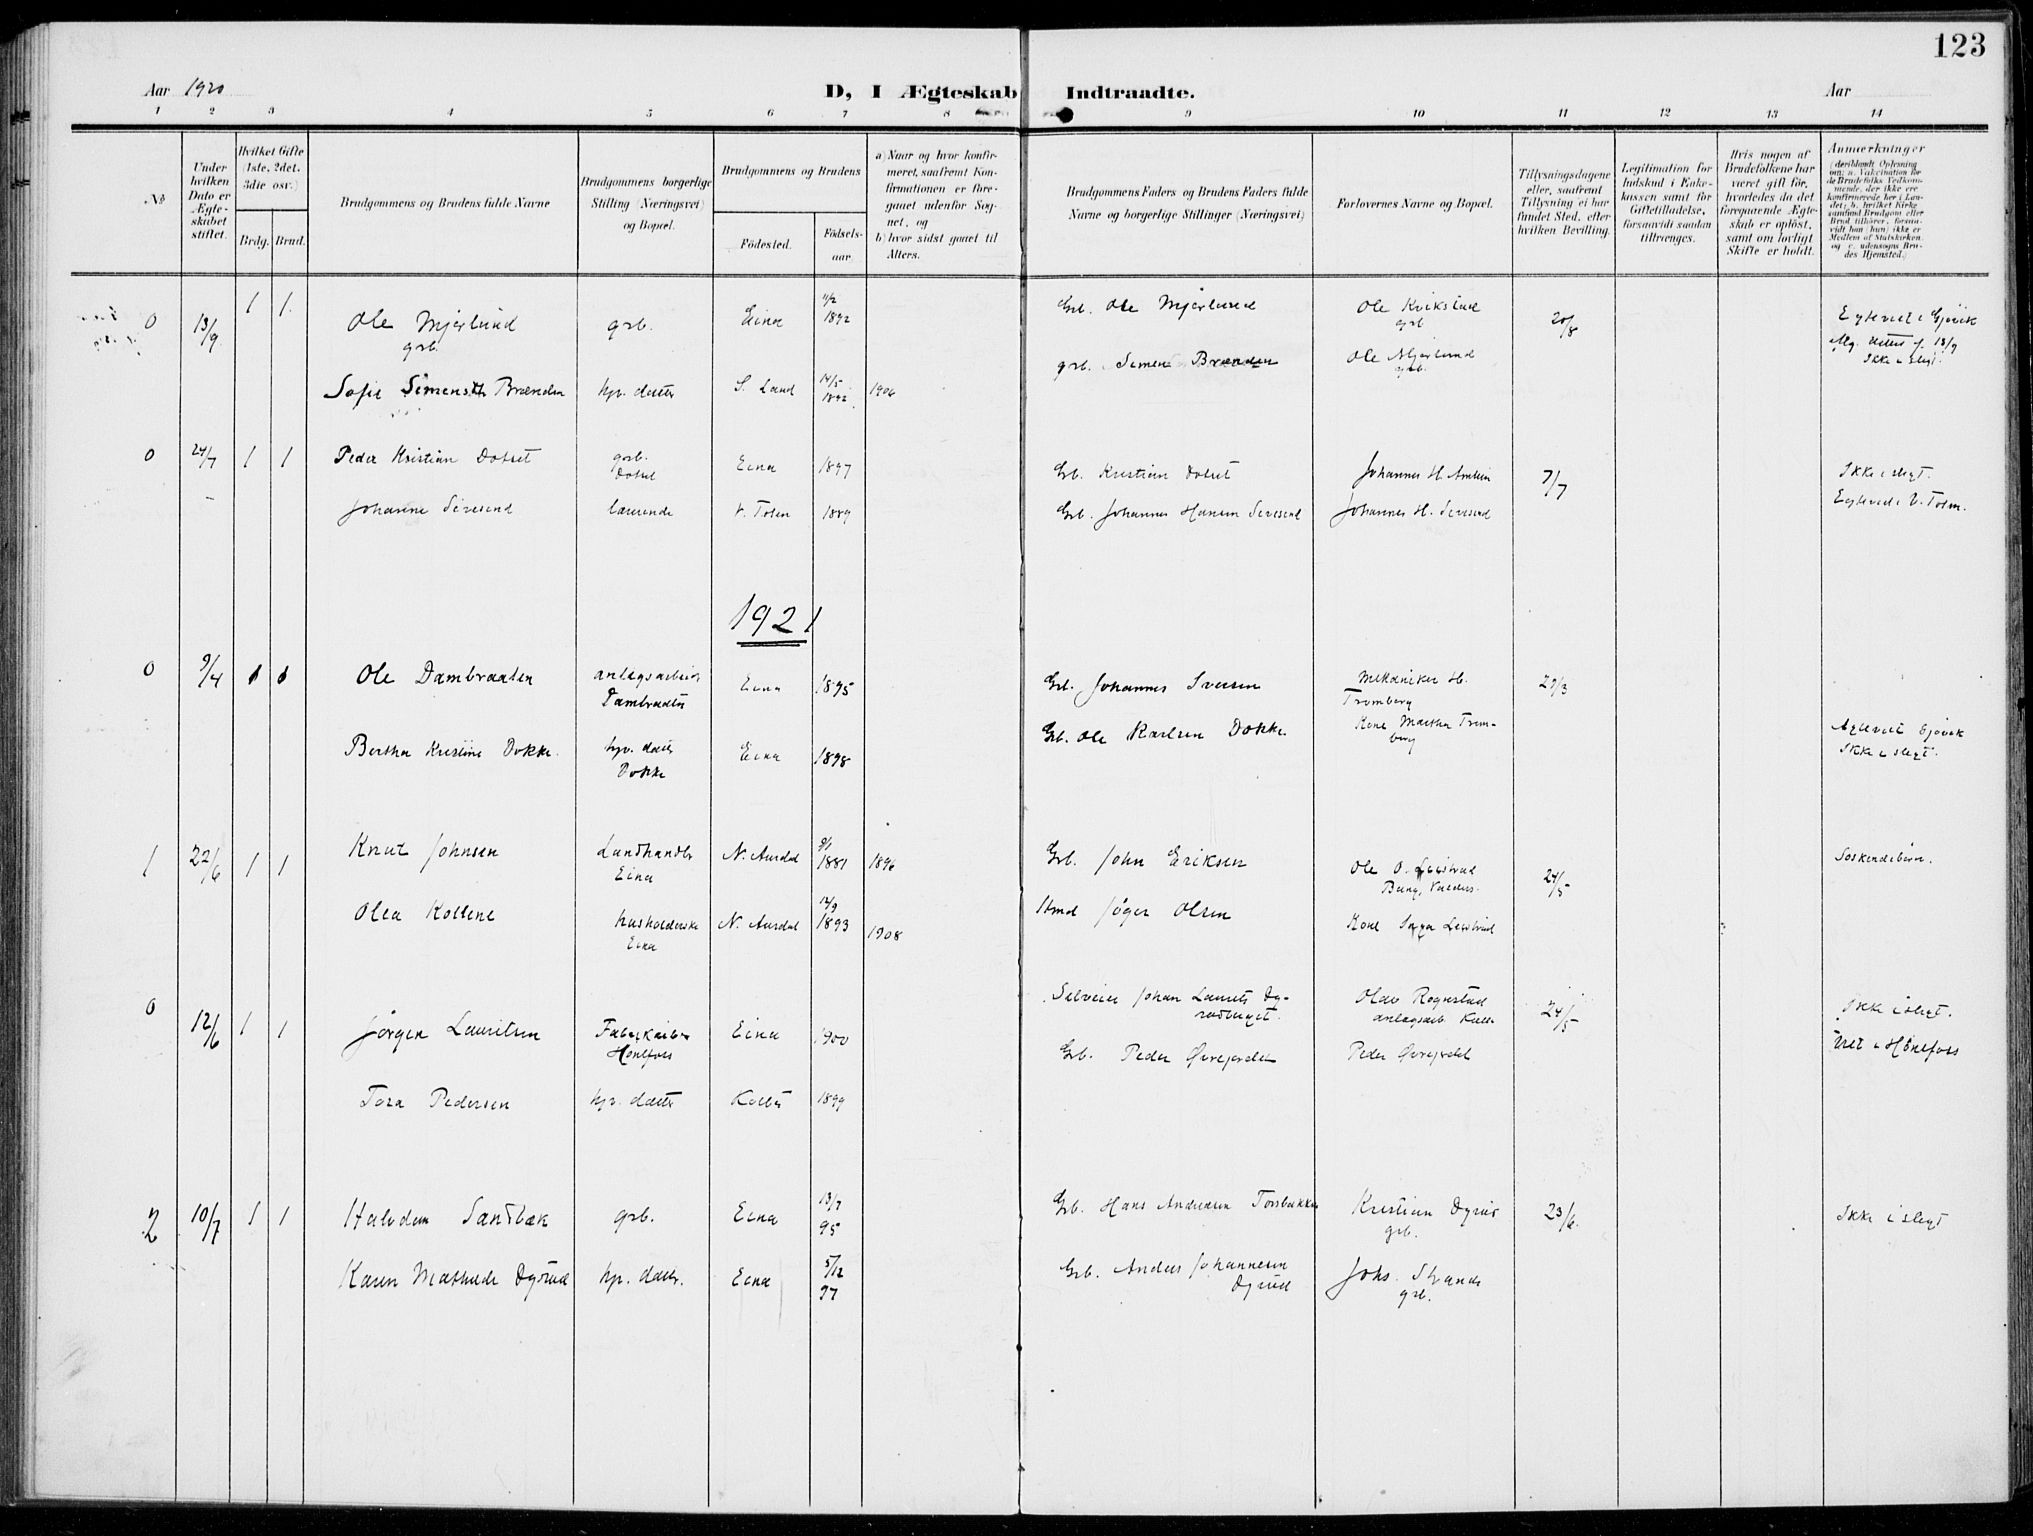 123
Aar 1920
D, I Ægteskab Indtraadte.
Aar
1 2 3 4 5 6 7 8 9 10 11 12 13 14
No
Under hvilken Dato er Ægteskabet stiftet.
Hvilket Gifte (1ste, 2det, 3die osv.)
Brdg. Brud.
Brudgommens og Brudens fulde Navne
Brudgommens borgerlige Stilling (Næringsvei) og Bopæl.
Brudgommens og Brudens
Fødested.
Fødselsaar.
a) Naar og hvor konfirmeret, saafremt Konfirmationen er foregaaet udenfor Sognet, og
b) hvor sidst gaaet til Alters.
Brudgommens Faders og Brudens Faders fulde Navne og borgerlige Stillinger (Næringsvei)
Forlovernes Navne og Bopæl.
Tillysningsdagene eller, saafremt Tillysning ei har fundet Sted, efter hvilken Bevilling.
Legitimation for Indskud i Enkekassen samt for Giftetilladelse, forsaavidt saadan tiltrænges.
Hvis nogen af Brudefolkene har været gift før, hvorledes da det foregaaende Ægteskab er opløst, samt om lovligt Skifte er holdt.
Anmærkninger (deriblandt Oplysning om: a. Vakcination for de Brudefolks Vedkommende, der ikke ere konfirmerede her i Landet; b. hvilket Kirkesamfund Brudgom eller Brud tilhører, forsaavidt han (hun) ikke er Medlem af Statskirken, og c. udensogns Brudes Hjemsted.)
0 13/9 1 1. Ole Mjørlund grb. Eina 11/2 1892 Grb. Ole Mjørlund Ole Kvikstad grb 20/8 Egteviet i Gjøvik
grb.
grb. Simen Brænden Ole Mjørlund grb. 13/9 Ikke i slegt.
Sofie Simensdtr Brænden hjv. datter S. Land 14/5 1892. 1906
0 24/7 1 1 Peder Kristian Dotset grb. Dotset Eina 1897 Grb. Kristian Dotset Johannes H. 7/7 Ikke i slegt.
Johanne Sivesind lærerinde V. Toten 1889 Grb. Johannes Hansen Sivesind Johannes H. Sivesind Egteviet i V. Toten.
1921
0 9/4 1 1 Ole Dambraaten anlegsarbeider Dambraaten Eina 1895 Grb. Johannes Iversen Mekaniker H. Tromberg 29/3
Bertha Kristine Dokke. hjv. datter Dokke Eina 1898 Grb. Ole Karlsen Dokke. Kone Martha Tromberg Egteviet Gjøvik Ikke i slegt.
1 22/6 1 1 Knut Johnsen Landhandler Eina N. Aurdal 9/1 1881 1896 Grb. John Eriksen Ole O. Valdres. 24/5 Søskendebarn.
Olea Kollene husholderske Eina N. Aurdal 12/9 1893 1908 Hmd Jøger Olsen Kone Inga
0 12/6 1 1 Jørgen Lauritsen Fabrikarbeider Hønefoss Eina 1900 Selveier Johan Laurits Dyrudberget. Olav Rognstad anlegsarb. Kolbu 24/5 Ikke i slegt.
Grb. Peder Øvregjerdet Peder Øvregjerdet Viet i Hønefoss
Tora Pedersen hjv. datter Kolbu 1899
2 10/7 1 1 Halvdan Sandbæk grb. Eina 13/7 95 Grb. Hans Andersen Forsbakken Kristian Dyrud grb. 23/6. Ikke i slegt
Karen Mathilde Dyrud hjv. datter. Eina 5/12 97 Grb. Anders Johannesen Dyrud Johs. Strande grb.